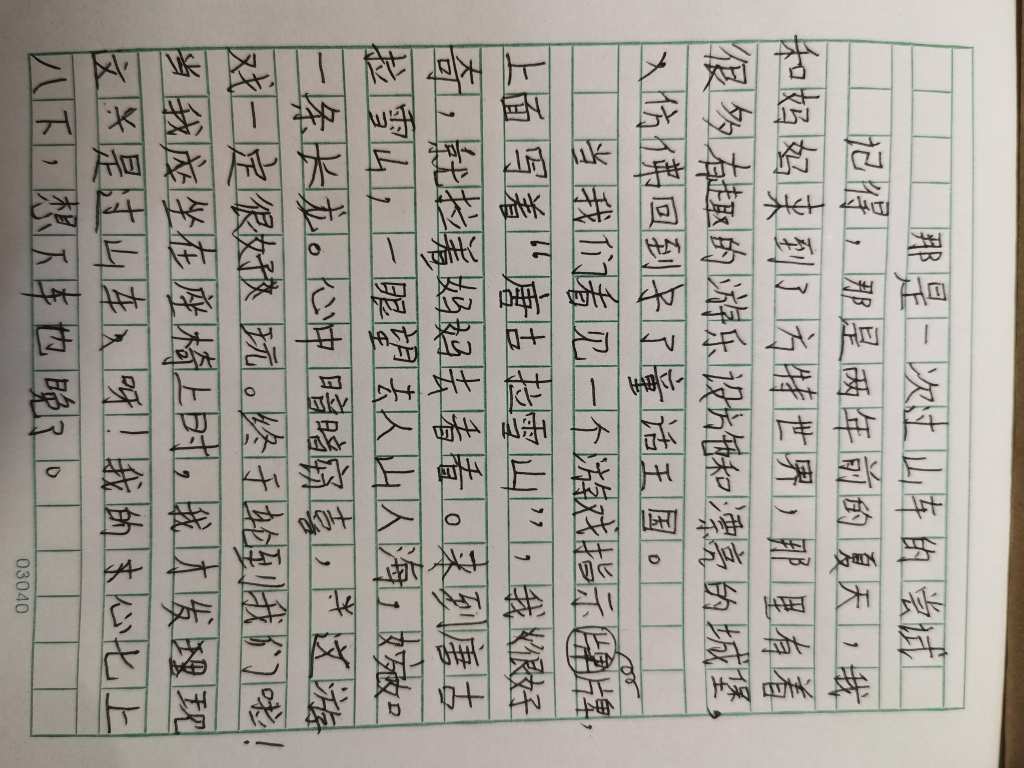 那是一次过山车的尝试
记得，那是两年前的夏天，我
和妈妈来到了方特世界，那里有着
很多有趣的游乐设施和漂亮的城堡，
仿佛回到了童话王国。
当我们看见一个游戏指示牌，
上面写着“唐古拉雪山”，我很好
奇，就拦着妈妈去看看。来到唐古
雪山，一眼望去人山人海，如
一条长龙。心中暗暗窃喜，这游
戏一定很好玩。终于轮到我们啦！
当我坐在座椅上时，我才发现
这是过山车，呀！我的心七上
八下，想下车也晚了。
03040